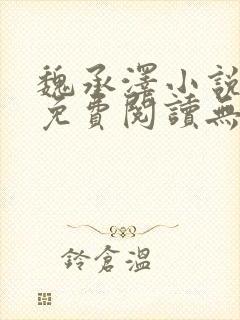 魏承澤小說
免費閱讀無
鈴倉溫